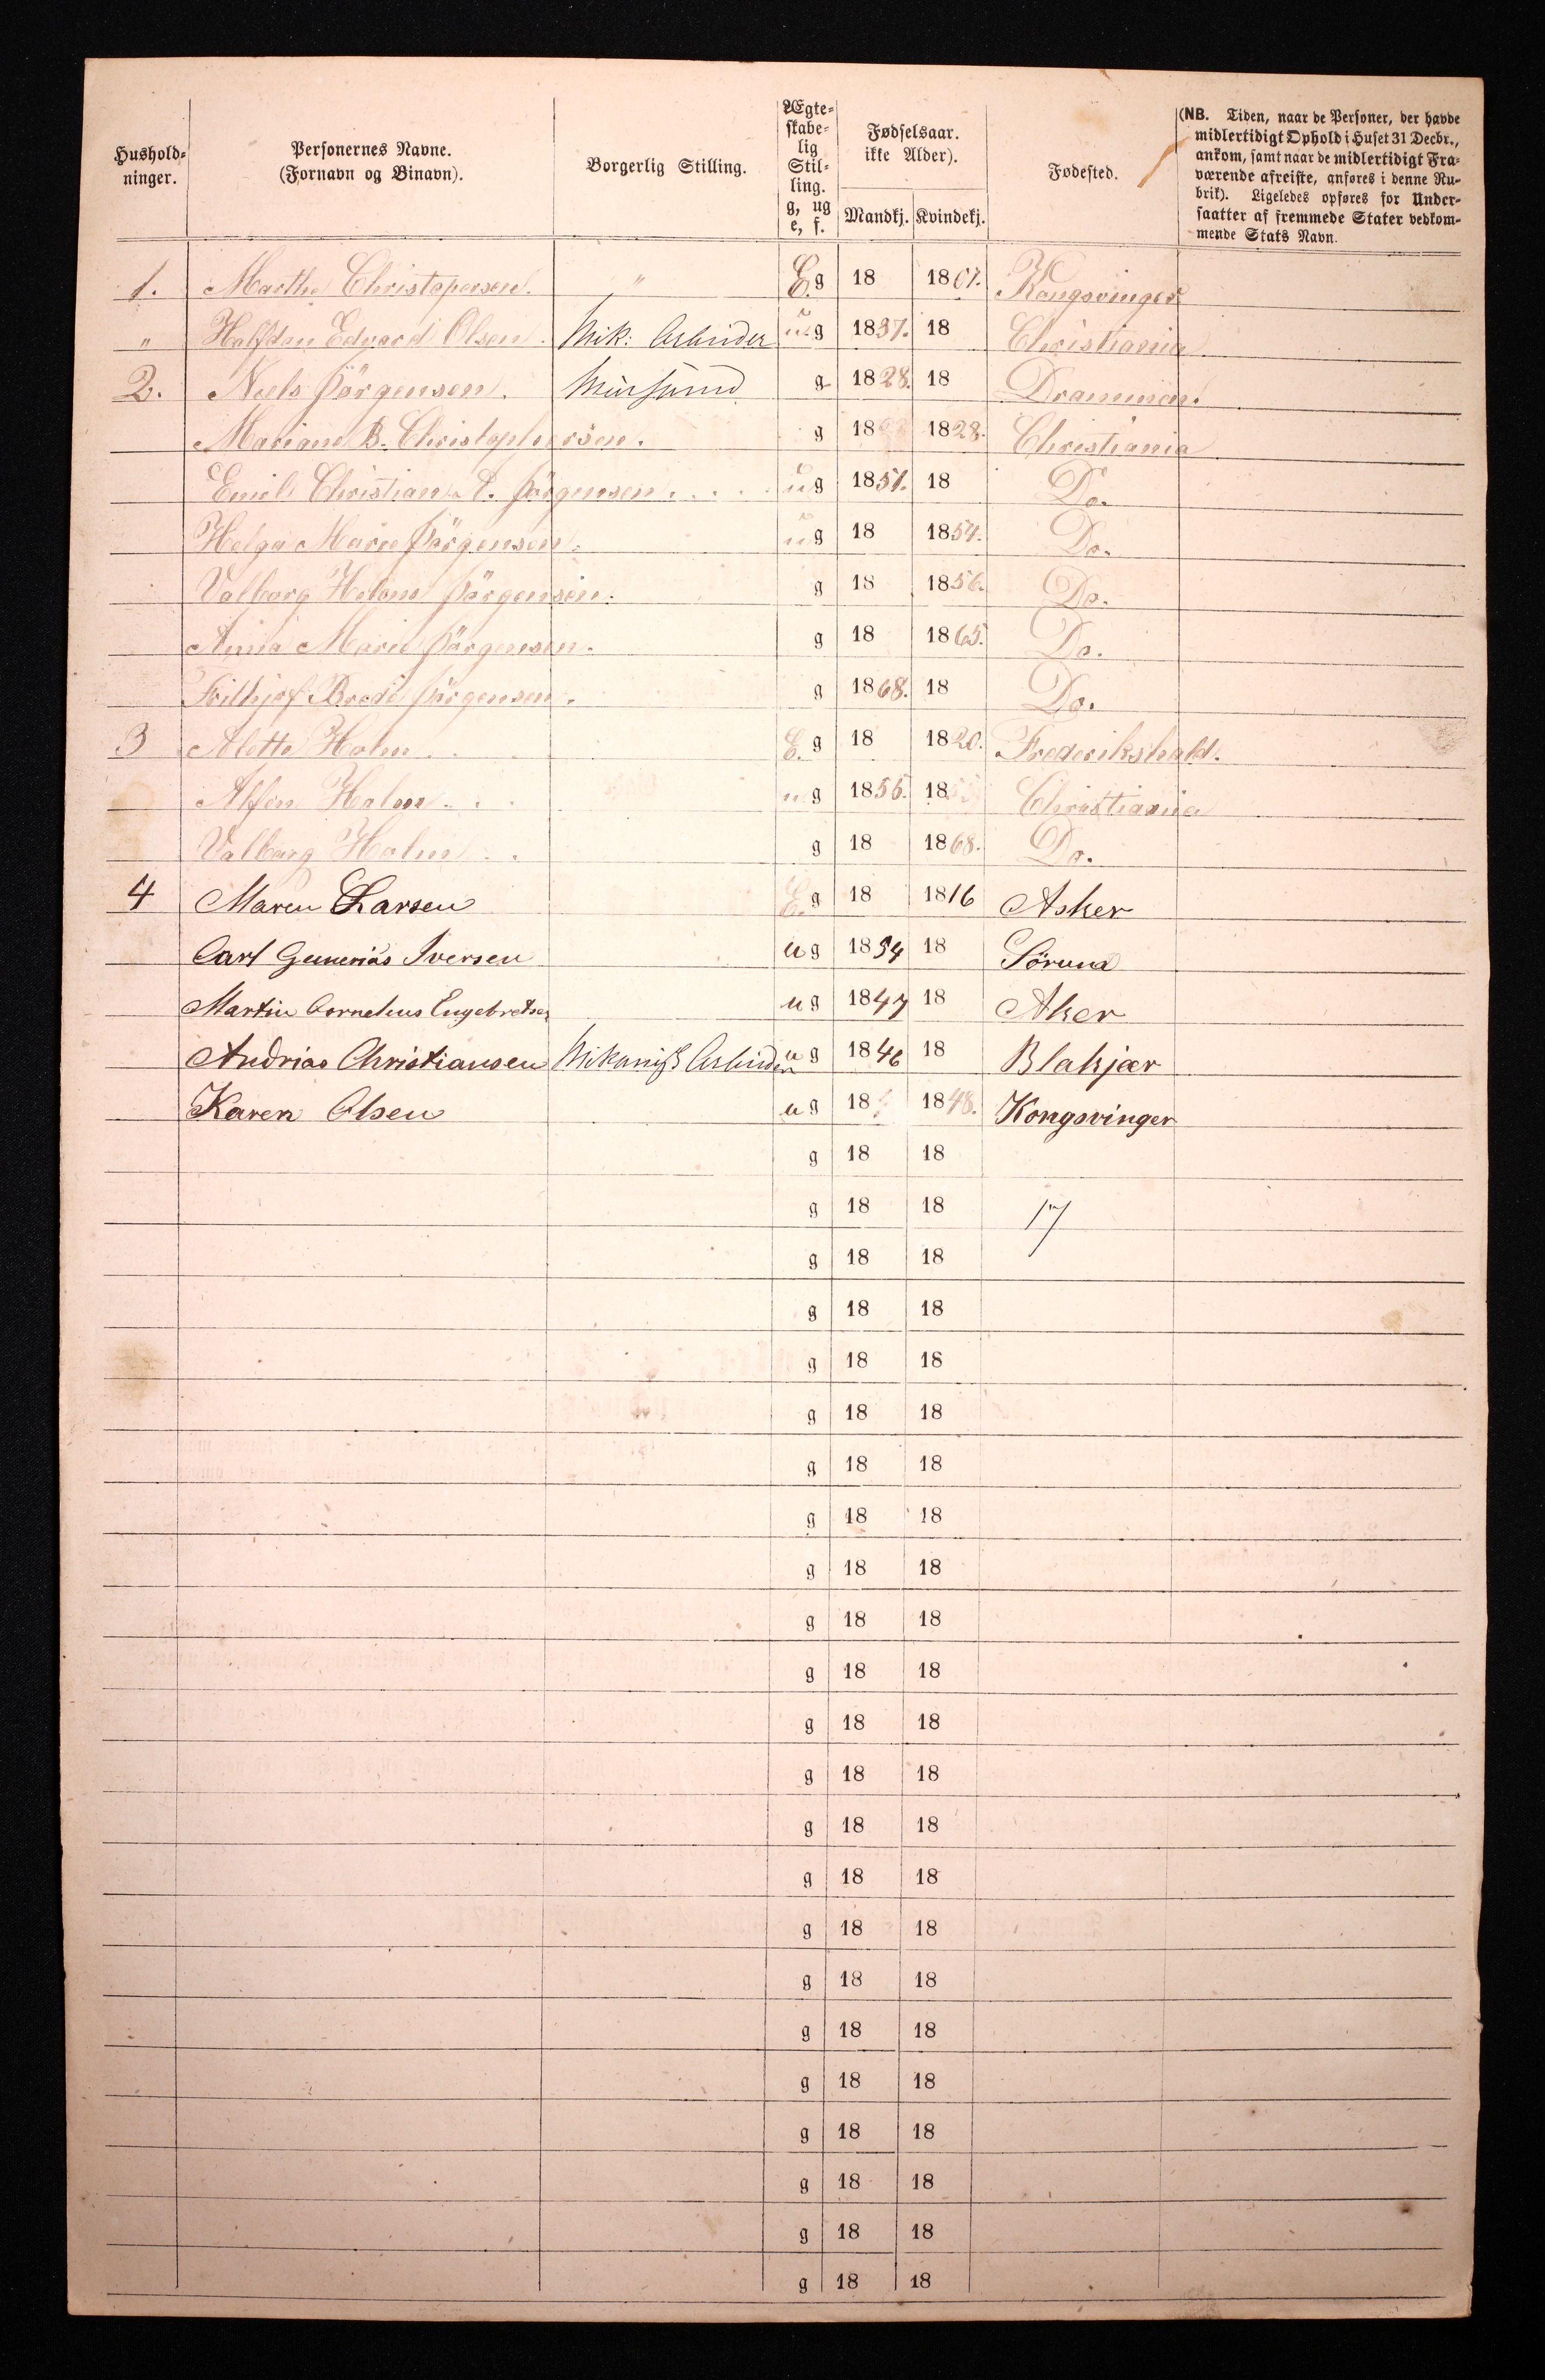 Hushold-
ninger.
Personernes Navne.
(Fornavn og Binavn).
Borgerlig Stilling.
Ægte-
skabe-
lig
Stil-
ling.
g, ug
e, f.
Fødselsaar.
ikke Alder).
Mandkj. Kvindekj.
Fødested.
(NB. Tiden, naar de Personer, der havde
midlertidigt Ophold i Huset 31 Decbr.,
ankom, samt naar de midlertidigt Fra-
værende afreiste, anføres i denne Ru-
brik). Ligeledes opføres for Under-
saatter af fremmede Stater vedkom-
mende Stats Navn.
1. Marthe Christopersen. " E. g 18 1801. Kongsvinger
" Halfdan Edvard Olsen. Mek: Arbeider ug 1837. 18 Christiania
2. Niels Jörgensen. g 1828. 18 Drammen.
Mariane B. Christophersen. g 18 1828. Christiania
Emil Christian Jörgensen. ug 1851. 18 Do.
Helga Marie Jörgensen. ug 18 1854. Do.
Valborg Helene Jörgensen. g 18 1856. Do.
Anna Marie Jörgensen. g 18 1865. Do.
Frithjof Brede Jörgensen. g 1868. 18 Do.
3 Alette Holm E. g 18 1820. Frederikshald.
Holm ug 1856. 18 Christiania
Valborg Holm g 18 1868. Do.
4 Maren Larsen E. g 18 1816 Asker
Carl Iversen ug 1854 18 Sörum
Martin Cornelius Engebretsen ug 1847 18 Aker
Andrias Christiansen Mekanisk Arbeider ug 1846 18 Blakjær
Karen Olsen ug 18 1848. Kongsvinger
g 18 18
g 18 18 17
g 18 18
g 18 18
g 18 18
g 18 18
g 18 18
g 18 18
g 18 18
g 18 18
g 18 18
g 18 18
g 18 18
g 18 18
g 18 18
g 18 18
g 18 18
g 18 18
g 18 18
g 18 18
g 18 18
g 18 18
g 18 18